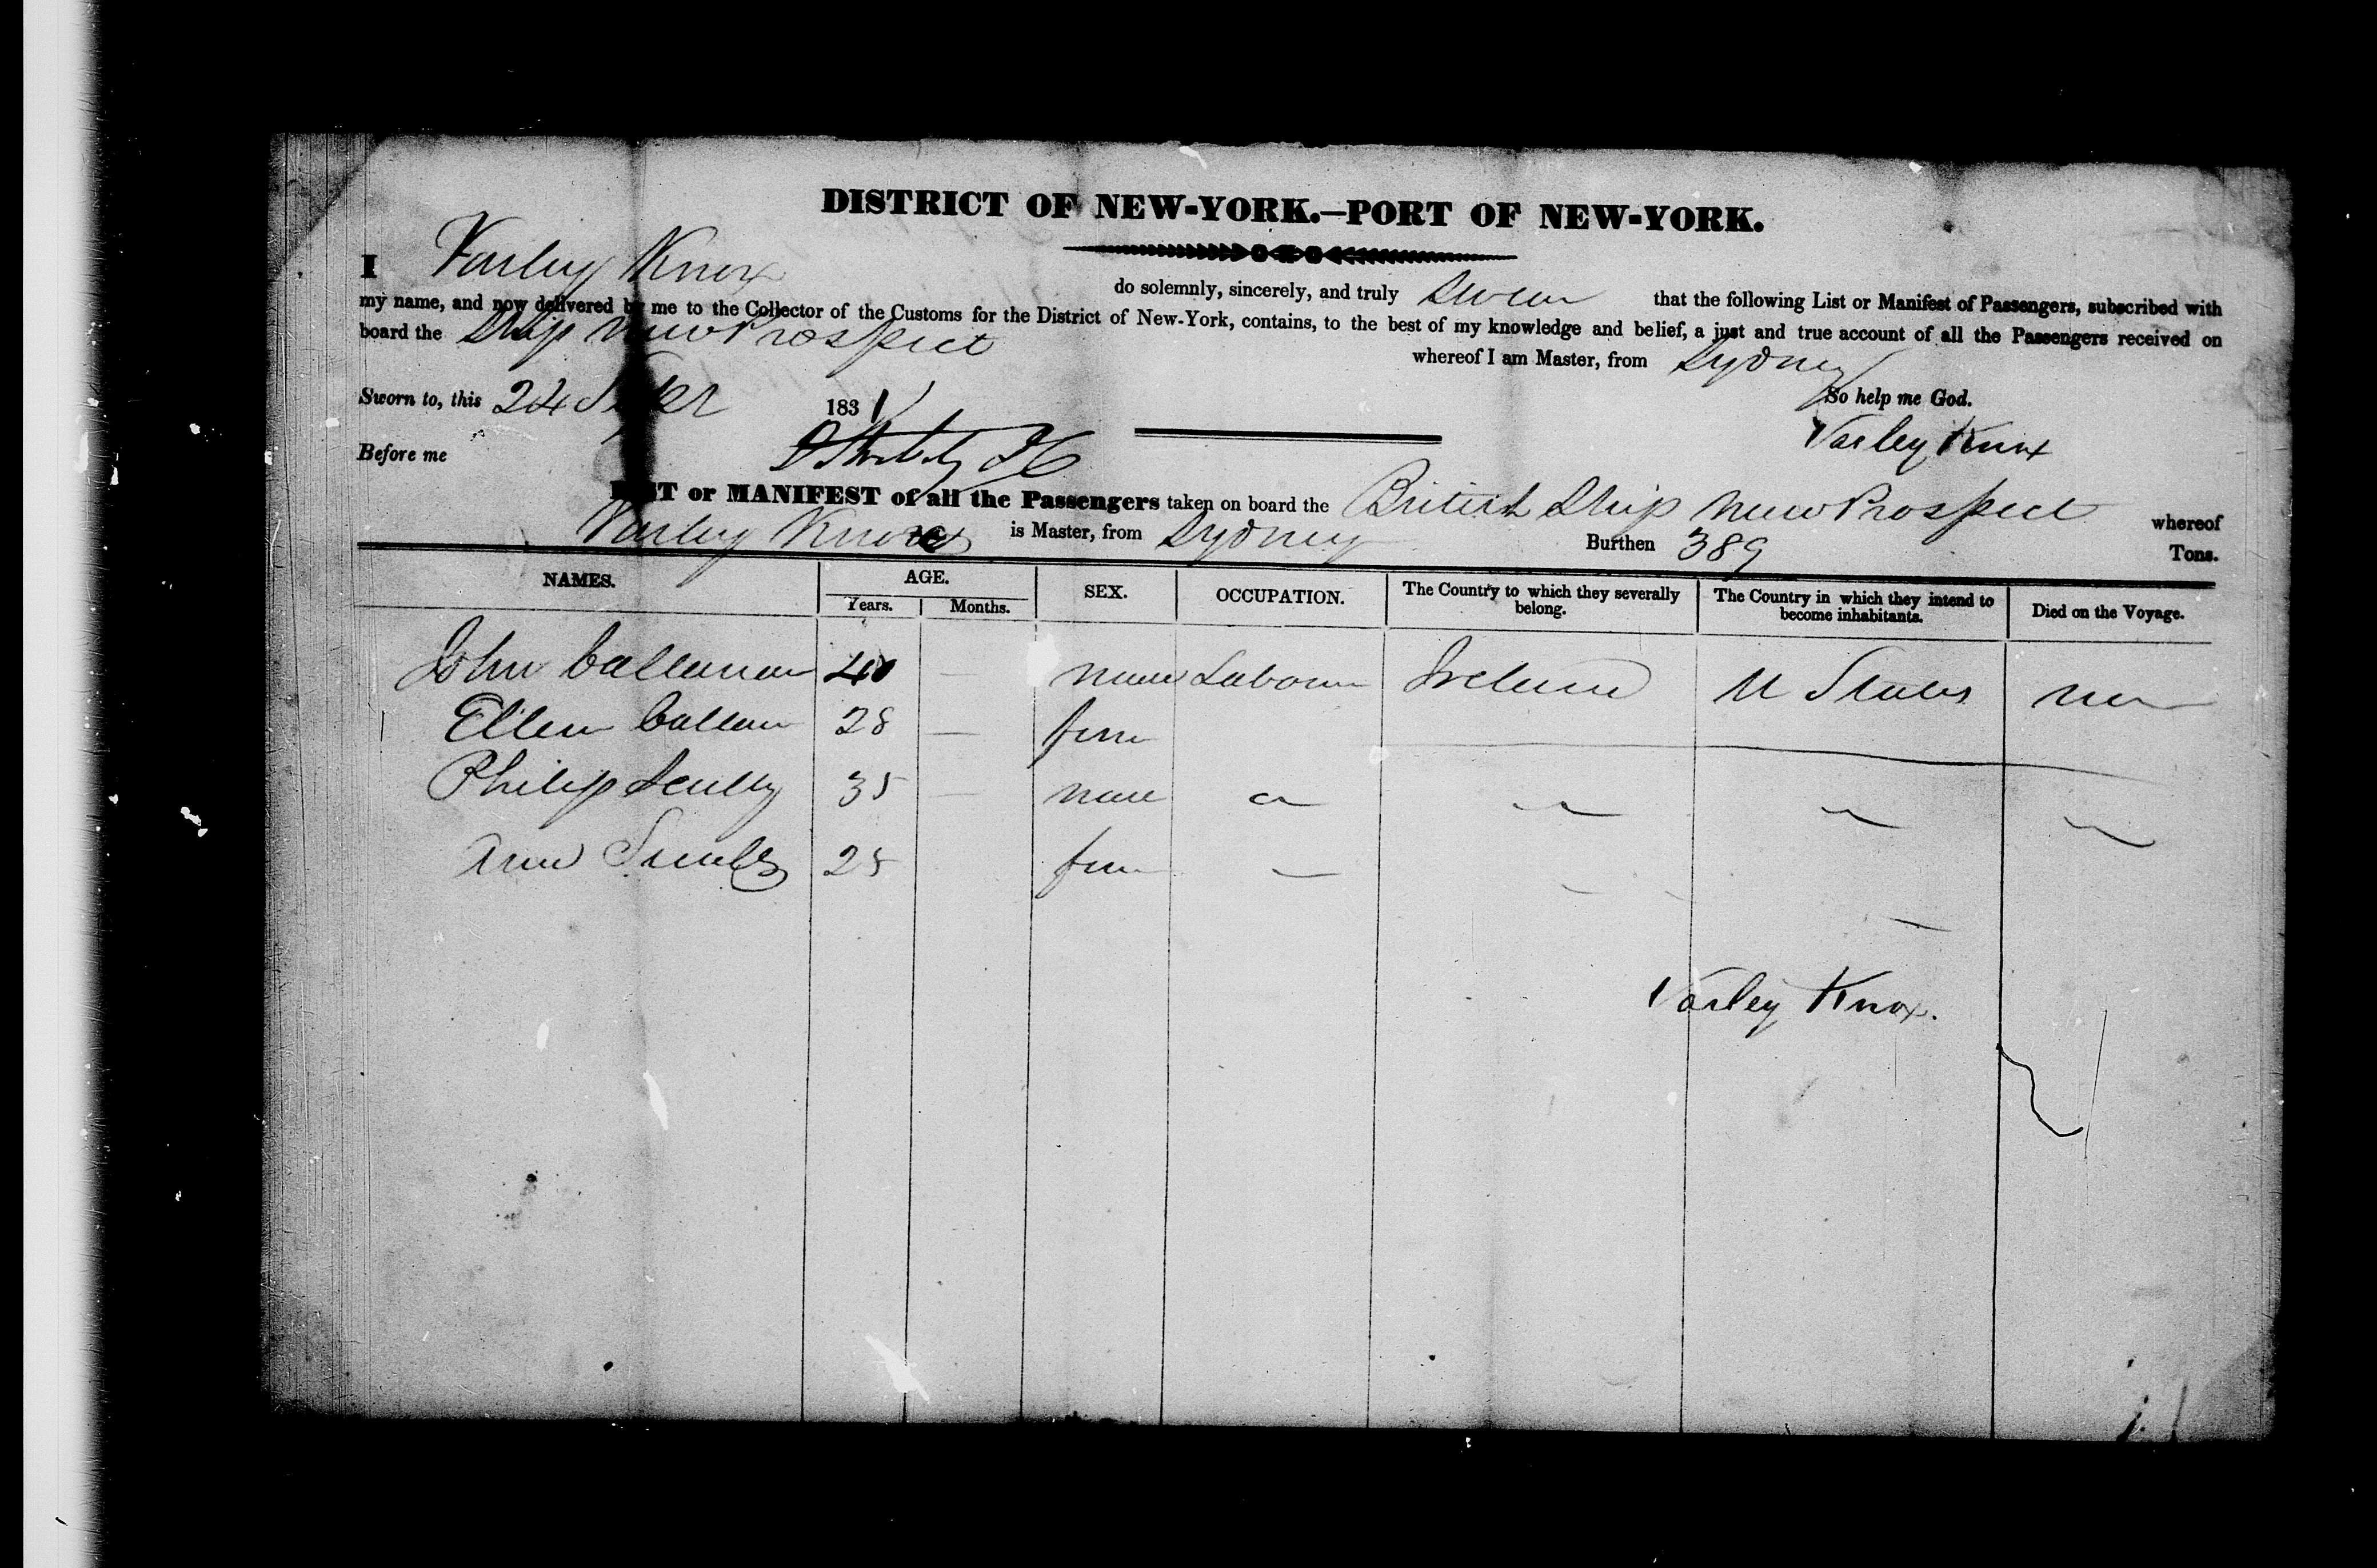 DISTRICT OF NEW-YORK.—PORT OF NEW-YORK.
I Varley Knox do solemnly, sincerely, and truly swear that the following List or Manifest of Passengers, subscribed with
my name, and now delivered by me to the Collector of the Customs for the District of New-York, contains, to the best of my knowledge and belief, a just and true account of all the Passengers received on
board the Ship New Prospect whereof I am Master, from Sydney
Sworn to, this 24 Septr 1831 So help me God.
Before me Varley Knox
LIST or MANIFEST of all the Passengers taken on board the British Ship New Prospect whereof
Varley Knox is Master, from Sydney Burthen 389 Tons.
NAMES. AGE. SEX. OCCUPATION. The Country to which they severally belong. The Country in which they intend to become inhabitants. Died on the Voyage.
Years. Months.
John Callanan 40 — male Labour Ireland U States
Ellen 28 — fem
Philip Scully 35 — male
Ann 25 fem —
Varley Knox.